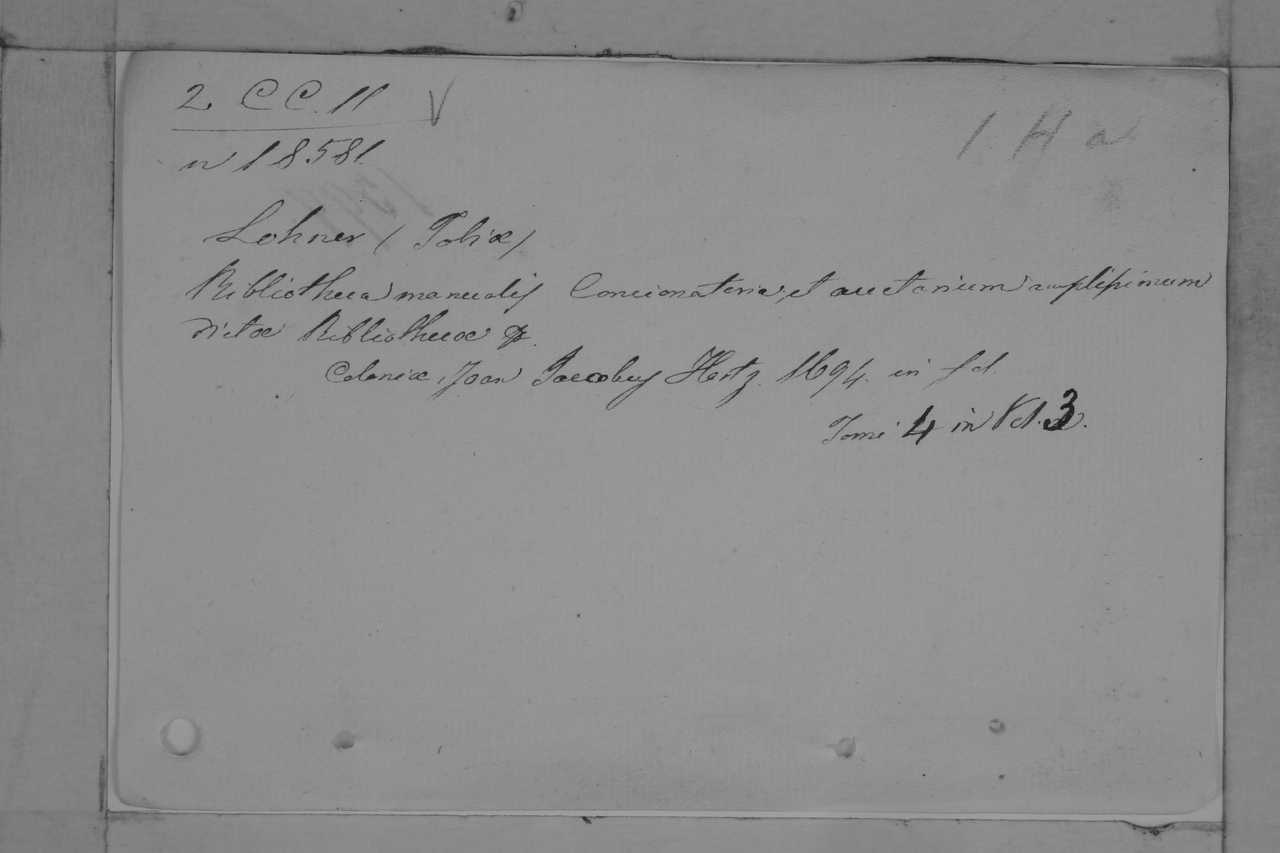 2 C C. 11 V
1 H a
n 18581.
Lohner (Tobiæ)
Bibliotheca manualis Concionatoria, et auctarium amplissimum
dictæ Bibliothecæ &.
Coloniæ, Joan Jacobus Hertz. 1694. in fol.
Tomi 4 in Vol. 3.